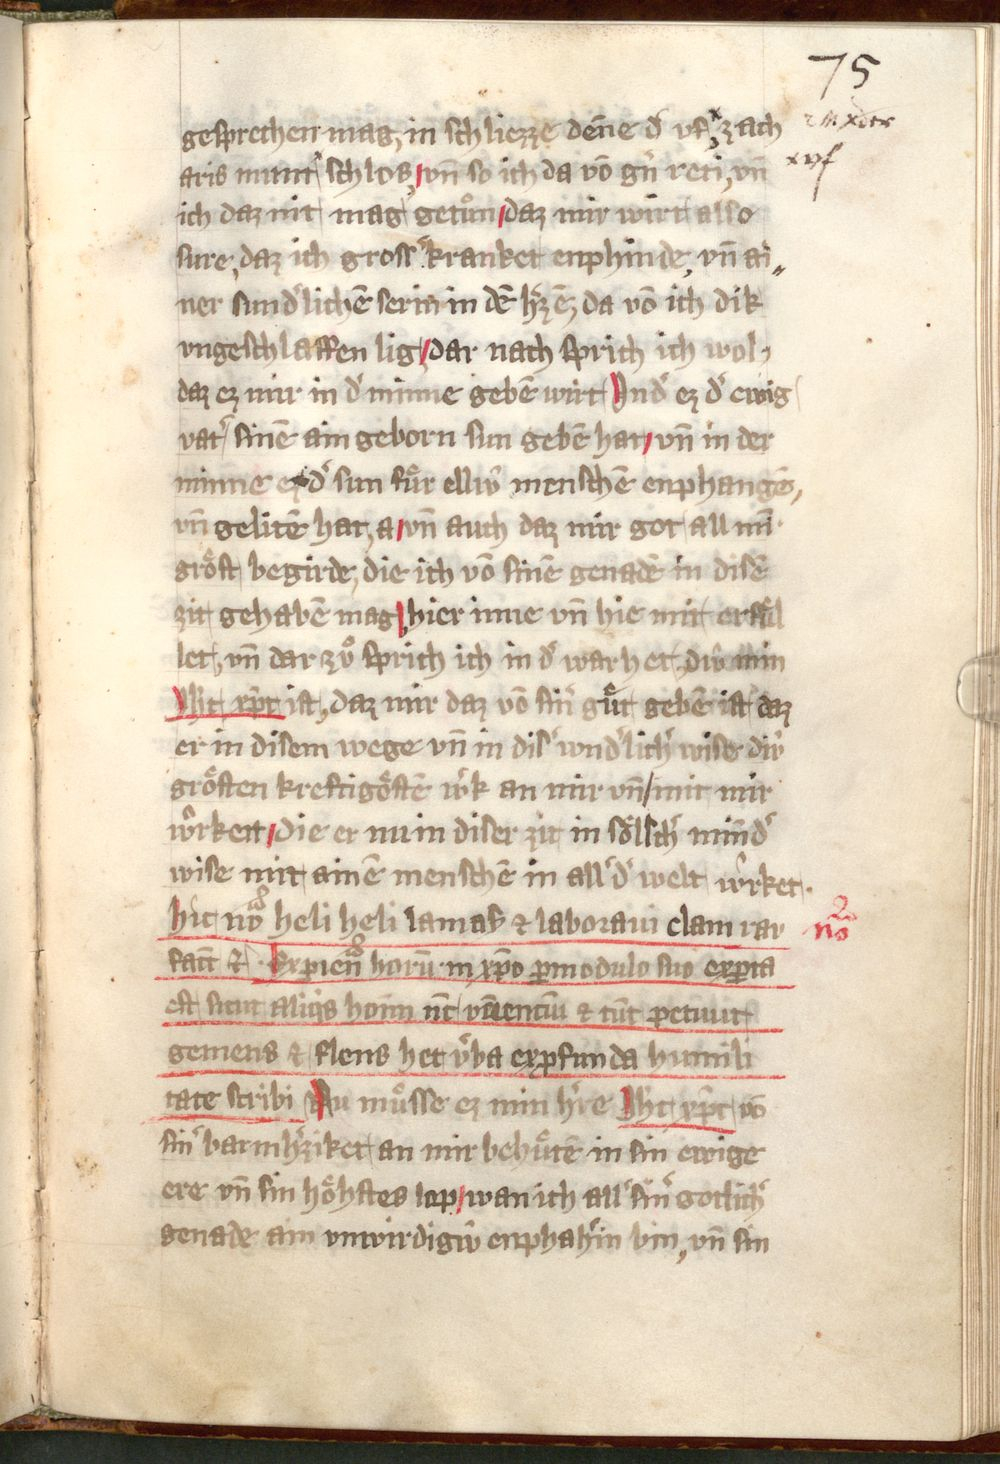 75
gesprechen mag, in schliezze deñe d' vf, zach
aris munt schlos, vn̄ so ich da vō gn̄ reti, vn̄
ich daz nit mag getůn, daz mir wirt also
sure, daz ich gross' kranket enphinde, vn̄ ai„
ner sund'lichē serin in dē h'zē, da vō ich dik
vngeschlaffen lig, dar nach sprich ich wol,
daz ez mir in d' minne gebē wirt Ind' ez d' ewig
vat' sinē ain geborn sun gebē hat, vn̄ in der
minne ez d' sun fůr elliv̂ menschē enphangē,
vn̄ gelitē hat, a vn̄ auch daz mir got all mī
grôst begirde, die ich vō sinē genadē in disē
zit gehabē mag, hier inne vn̄ hie mit erfůl
let, vn̄ dar zů sprich ich in d' warhet, div̂ min
Jh't xp̄c ist, daz mir daz vō sin' gůt gebē ist daz
er in disem wege vn̄ in dis' wnd'lich' wise div̂
grôsten kreftigôstē w'k an mir vn̄ mit mir
wûrkett, die er nu in diser zit in sôlsch' mind'
wise mit ainē menschē in all' d' welt wûrket.
hic nō heli heli lamaȝ & laboraui clam rau
fact & Expien horū in xp̄o pmodulo suo expta
est sicut aliqs hoīm nt̄ viuentiū & tūt petiuit
gemens & flens het v'ba exp funda humili
tate scribi Nu můsse ez min h're Jh't xp̄c vō
sin' barmh'ziket an mir behůtē in sin ewige
ere vn̄ sin hôhstes lop, wan ich all' sin' gotlich'
genade ain vnwirdigiv̂ enphah'in bin, vn̄ sin
nō